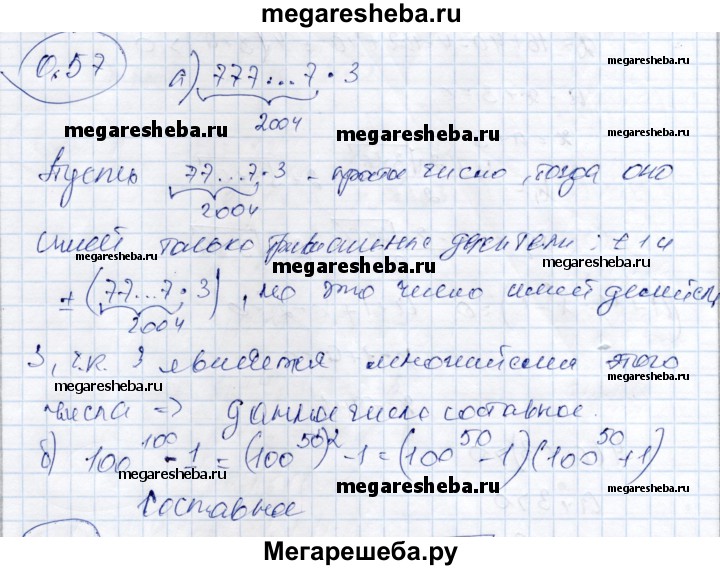 megaresheba.ru
0.57 а) 777...7 · 3
megaresheba.ru megaresheba.ru
2004
megaresheba.ru
Пусть 77...7·3 - простое число, тогда оно
2004
имеет только тривиальные делители: ±1 и
megaresheba.ru megaresheba.ru
± (77...7·3), но это число имеет делитель
2004
megaresheba.ru megaresheba.ru
3, т.к. 3 является множителем этого
megaresheba.ru megaresheba.ru
числа => данное число составное.
б) 100^100 - 1 = (100^50)^2 - 1 = (100^50 - 1)(100^50 + 1)
megaresheba.ru megaresheba.ru megaresheba.ru
составное
Мегарешеба.ру